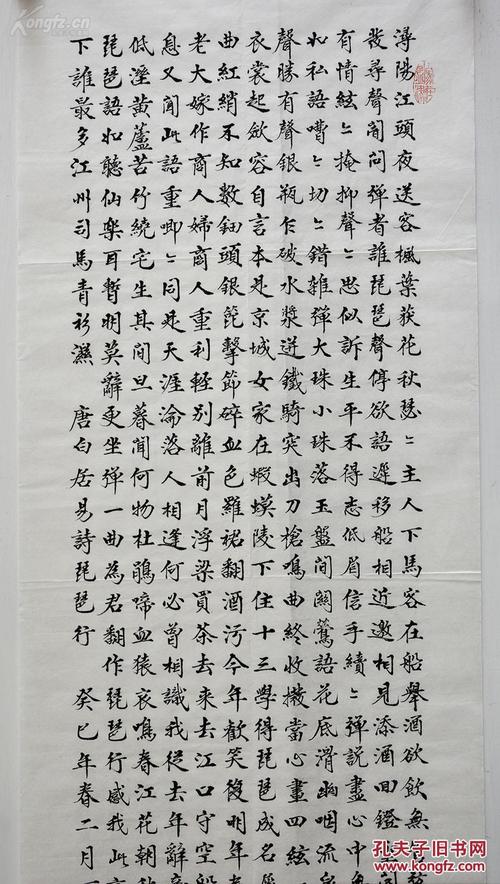 潯陽江頭夜送客楓葉荻花秋瑟〻主人下馬客在船舉酒欲飲無
發尋聲闇問彈者誰琵琶聲停欲語遲移船相近邀相見添酒回燈
有情絃〻掩抑聲〻思似訴生平不得志低眉信手續〻彈說盡心中無
如私語嘈〻切〻錯雜彈大珠小珠落玉盤間關鶯語花底滑幽咽流泉
聲勝有聲銀瓶乍破水漿迸鐵騎突出刀槍鳴曲終收撥當心畫四絃一
衣裳起斂容自言本是京城女家在蝦蟆陵下住十三學得琵琶成名屬
曲紅綃不知數鈿頭銀篦擊節碎血色羅裙翻酒污今年歡笑復明年
老大嫁作商人婦商人重利輕別離前月浮梁買茶去來去江口守空船
息又聞此語重唧〻同是天涯淪落人相逢何必曾相識我從去年辭帝
低溼黃蘆苦竹繞宅生其間旦暮聞何物杜鵑啼血猿哀鳴春江花朝秋
琵琶語如聽仙樂耳暫明莫辭更坐彈一曲為君翻作琵琶行感我此
下誰最多江州司馬青衫濕 唐白居易詩琵琶行 癸巳年春二月
kongfz.cn
孔夫子旧书网
KONGFZ.COM